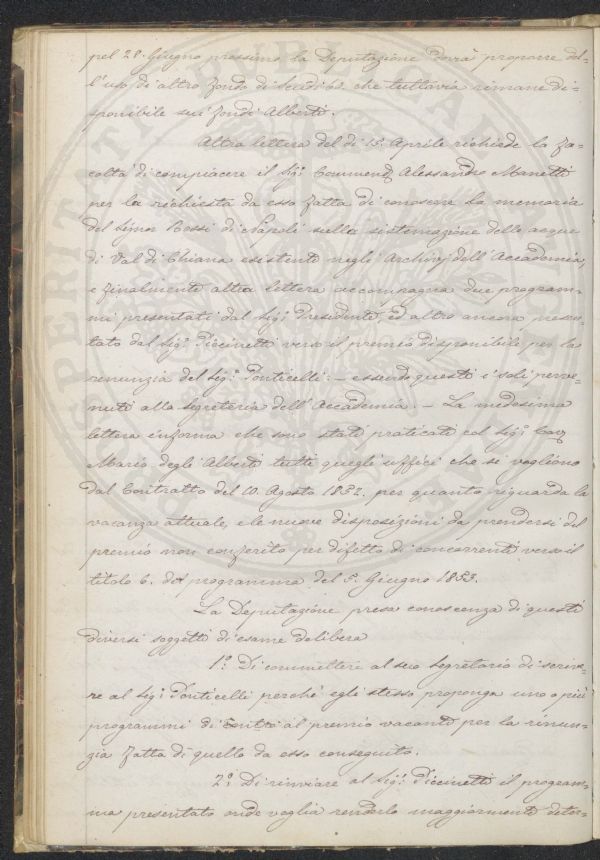 pel 28. Giugno prossimo la Deputazione dovrà proporre del-
l'uso di altro fondo di scudi 60. che tuttavia rimane di-
sponibile sui fondi Alberti.
Altra lettera del dì 15. Aprile richiede la fa-
coltà di compiacere il Sig.r Commend. Alessandro Manetti
per la richiesta da esso fatta di conoscere la memoria
del Signor Rossi di Napoli sulla sistemazione delle acque
di Val di Chiana esistente negli Archivj dell'Accademia,
e finalmente altra lettera accompagna due program-
mi presentati dal Sig.r Presidente, ed altro ancora presen-
tato dal Sig.r Piccinetti verso il premio disponibile per la
renunzia del Sig.r Ponticelli: — essendo questi i soli perve-
nuti alla Segreteria dell'Accademia. — La medesima
lettera informa che sono stati praticati col Sig.r Cav.
Mario degli Alberti tutti quegli uffici che si vogliono
dal Contratto del 10. Agosto 1832. per quanto riguarda la
vacanza attuale, e le nuove disposizioni da prendersi del
premio non conferito per difetto di concorrenti verso il
titolo 6. del programma del 5. Giugno 1853.
La Deputazione presa conoscenza di questi
diversi soggetti di esame delibera
1.º Di commettere al suo Segretario di scrive-
re al Sig.r Ponticelli perché egli stesso proponga uno o più
programmi di al premio vacante per la rinun-
zia fatta di quello da esso conseguito.
2.º Di rinviare al Sig.r Piccinetti il program-
ma presentato onde voglia renderlo maggiormente deter-